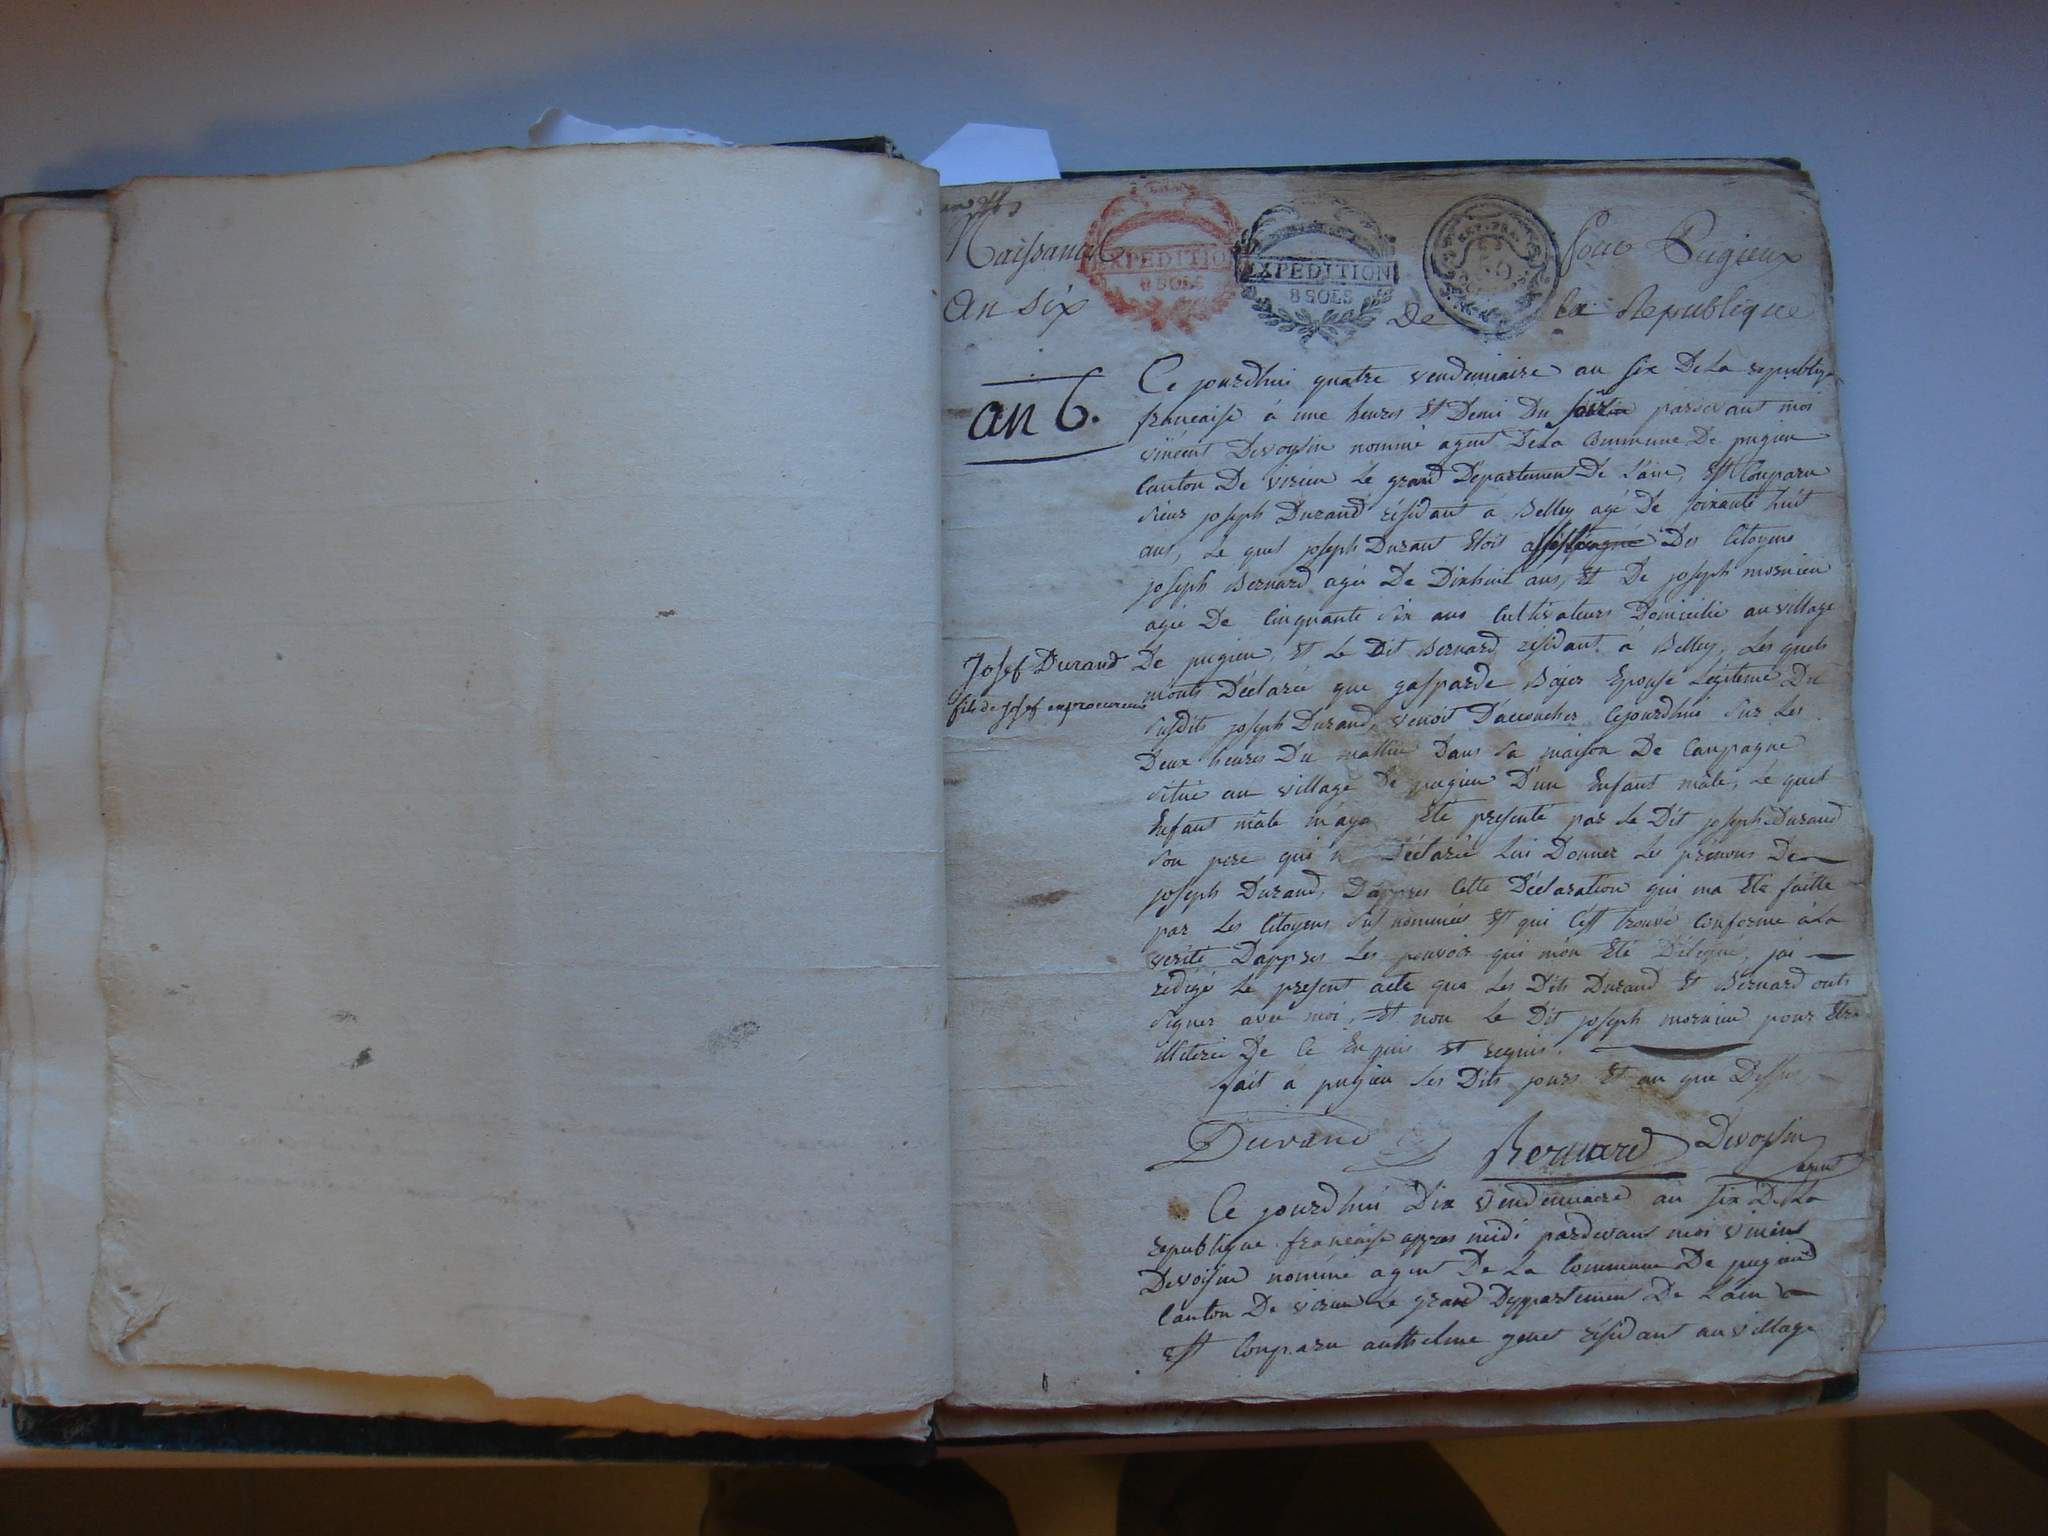 Naissances
pour Pugieux
an six
de la Republique
EXPEDITION
8 SOLS
EXPEDITION
8 SOLS
REP. FRA.
an 6.
Ce jourdhui quatre vendemiaire an six De La republique
francaise á une heures Et Demi Du soir pardevant moi
vincent Devoysin nommé agent De La Commune De pugieu
Canton De virieu Le grand Département De L'ain, Est Comparu
sieur joseph Durand résidant á Belley agé De soixante huit
ans, Le quel joseph Durant Etoit Des Citoyens
joseph Bernard agé De Dixhuit ans, Et De joseph mornieu
agée De Cinquante six ans Cultivateurs Domicilié au village
De pugieu, Et Le Dit Bernard résidant á Belley, Les quels
Josef Durand
fils de Josef exprocureur
monts Déclarée que gasparde Bojer Epouse Légiteme Du
susdits joseph Durand, venoit D'accoucher Cejourdhui sur Les
Deux heures Du mattin Dans sa maison De Campagne
situé au village De pugieu D'un Enfant mâle, Le quel
Enfant mâle m'aya Eté presenté par Le Dit joseph Durand
son pere qui a Déclarée Lui Donner Les prénoms De
joseph Durand, D'appres Cette Déclaration qui ma Eté faitte
par Les Citoyens sus nommées Et qui C'est trouvé Conforme á La
verité D'appres Les pouvoir qui m'on Eté Délegué, jai
redigé Le present acte que Les Dits Durand Et Bernard onts
signer avec moi, Et non Le Dit joseph mornieu pour Etre
illiterée De Ce Enquis Et requis.
fait á pugieu Les Dits jours Et an que Dessus
Durand Bernard Devoysin
agent
Ce jourdhui Dix vendemiaire an six De La
republique francaise appres midi pardevant moi vincent
Devoisin nommé agent De La Commune De pugieu
Canton De virieu Le grand Deppartement De L'ain
Est Comparu anthelme genet résidant au village